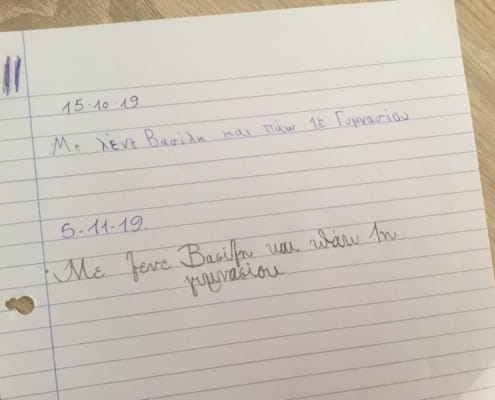 11
15.10.19
Με λένε Βασίλη και πάω 1ε Γυμνασίου
5-11-19.
Με λενε Βασιλη και πάω 1η
γυμνασιου